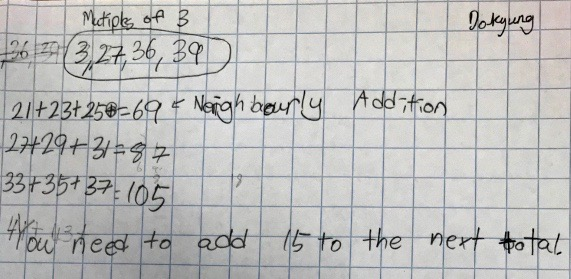 Mutiples of 3
Dokyung
3, 27, 36, 39
21+23+25=69 ← Neighbourly Addition
27+29+31=87
33+35+37=105
You need to add 15 to the next total.